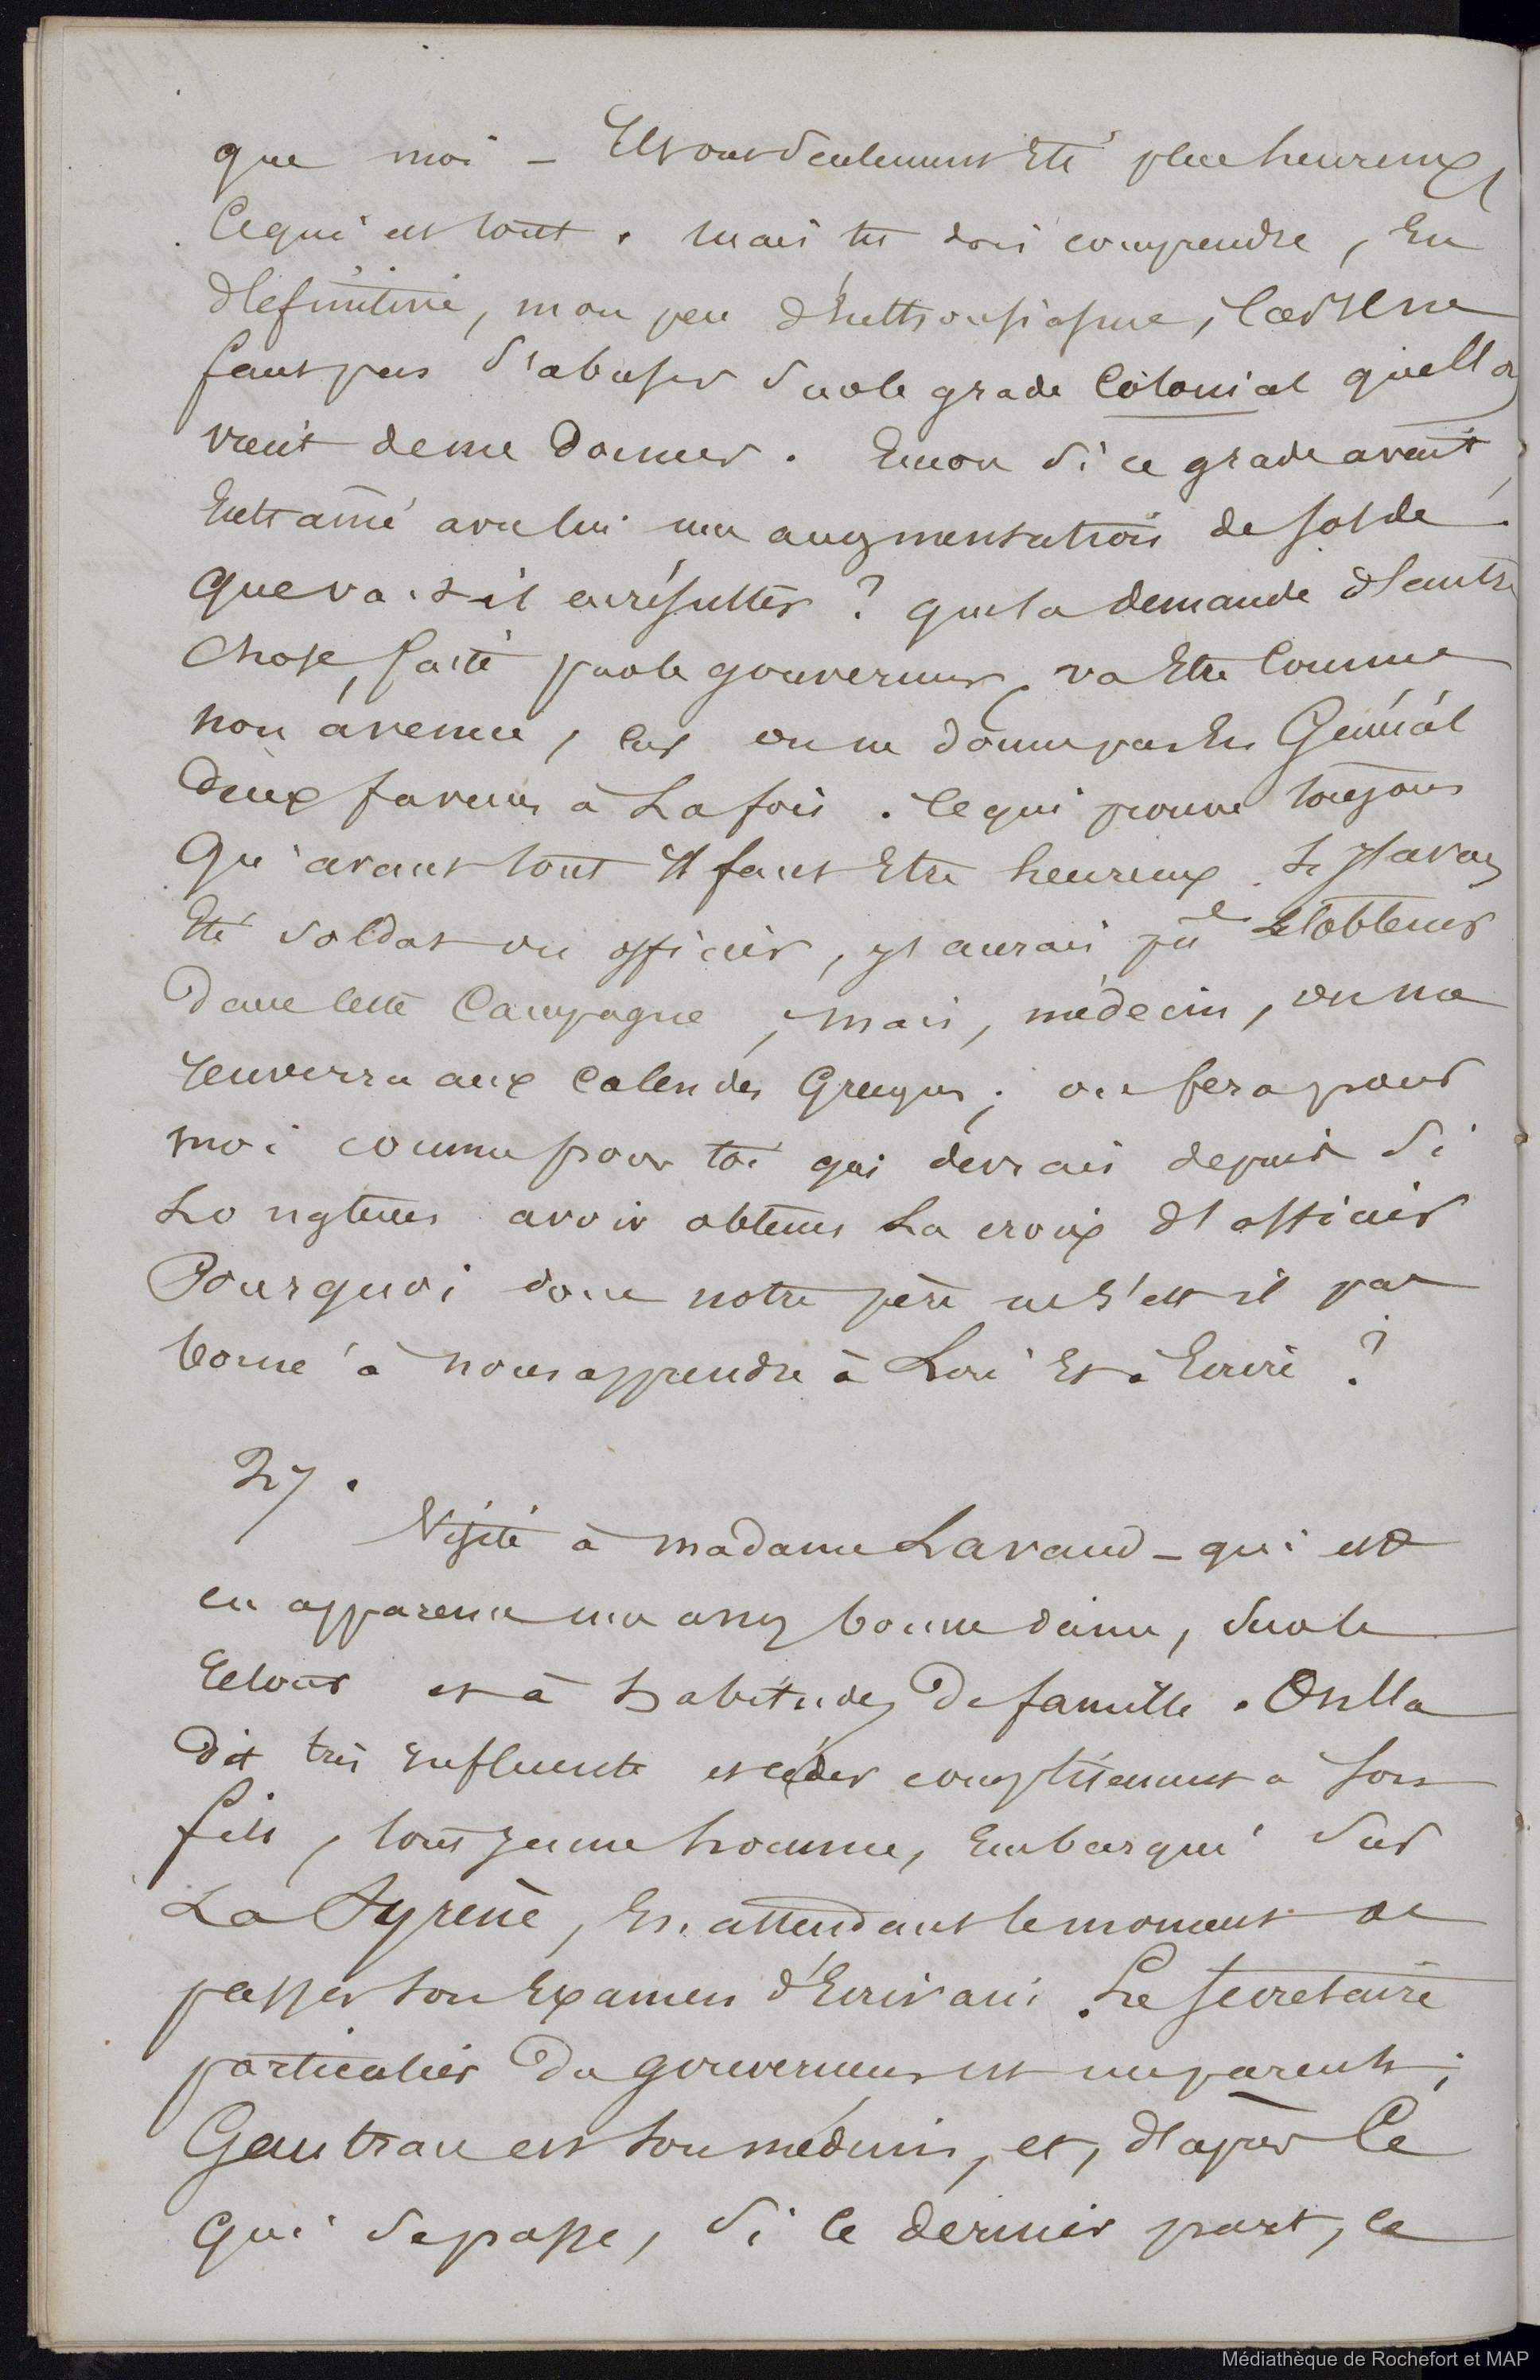 que moi – Ils ont seulement été plus heureux,
ce qui est tout. Mais tu dois comprendre, en
définitive, mon peu d'enthousiasme, car il ne
faut pas s'abuser sur le grade colonial qu'il
vient de me donner. Encor si ce grade avait
entrainé avec lui une augmentation de solde.
que va-t-il en résulter ? que la demande d'autre
chose, faite par le gouverneur, va être comme
non avenue, car on ne donne pas en Général
deux faveurs à la fois. Ce qui prouve toujours
qu'avant tout il faut être heureux. Si j'avais
été soldat ou officier, j'aurais pu l'obtenir
dans cette campagne, mais, médecin, on me
renverra aux calendes Grecques ; on fera pour
moi comme pour toi qui devrais depuis si
longtems avoir obtenu la croix d'officier
Pourquoi donc notre père ne s'est il pas
borné à nous apprendre à lire et à Ecrire ?
27.
Visite à madame Lavaud – qui est
en apparence une assez bonne dame, sur le
retour et à habitudes de famille. On la
dit très influente et céder complètement à son
fils, tout jeune homme, embarqué sur
La Syrène, en attendant le moment de
passer son Examen d'Ecrivain. Le secretaire
particulier du gouverneur est un parent ;
Gautrau est son médecin, et, d'après ce
qui se passe, si ce dernier part, ce